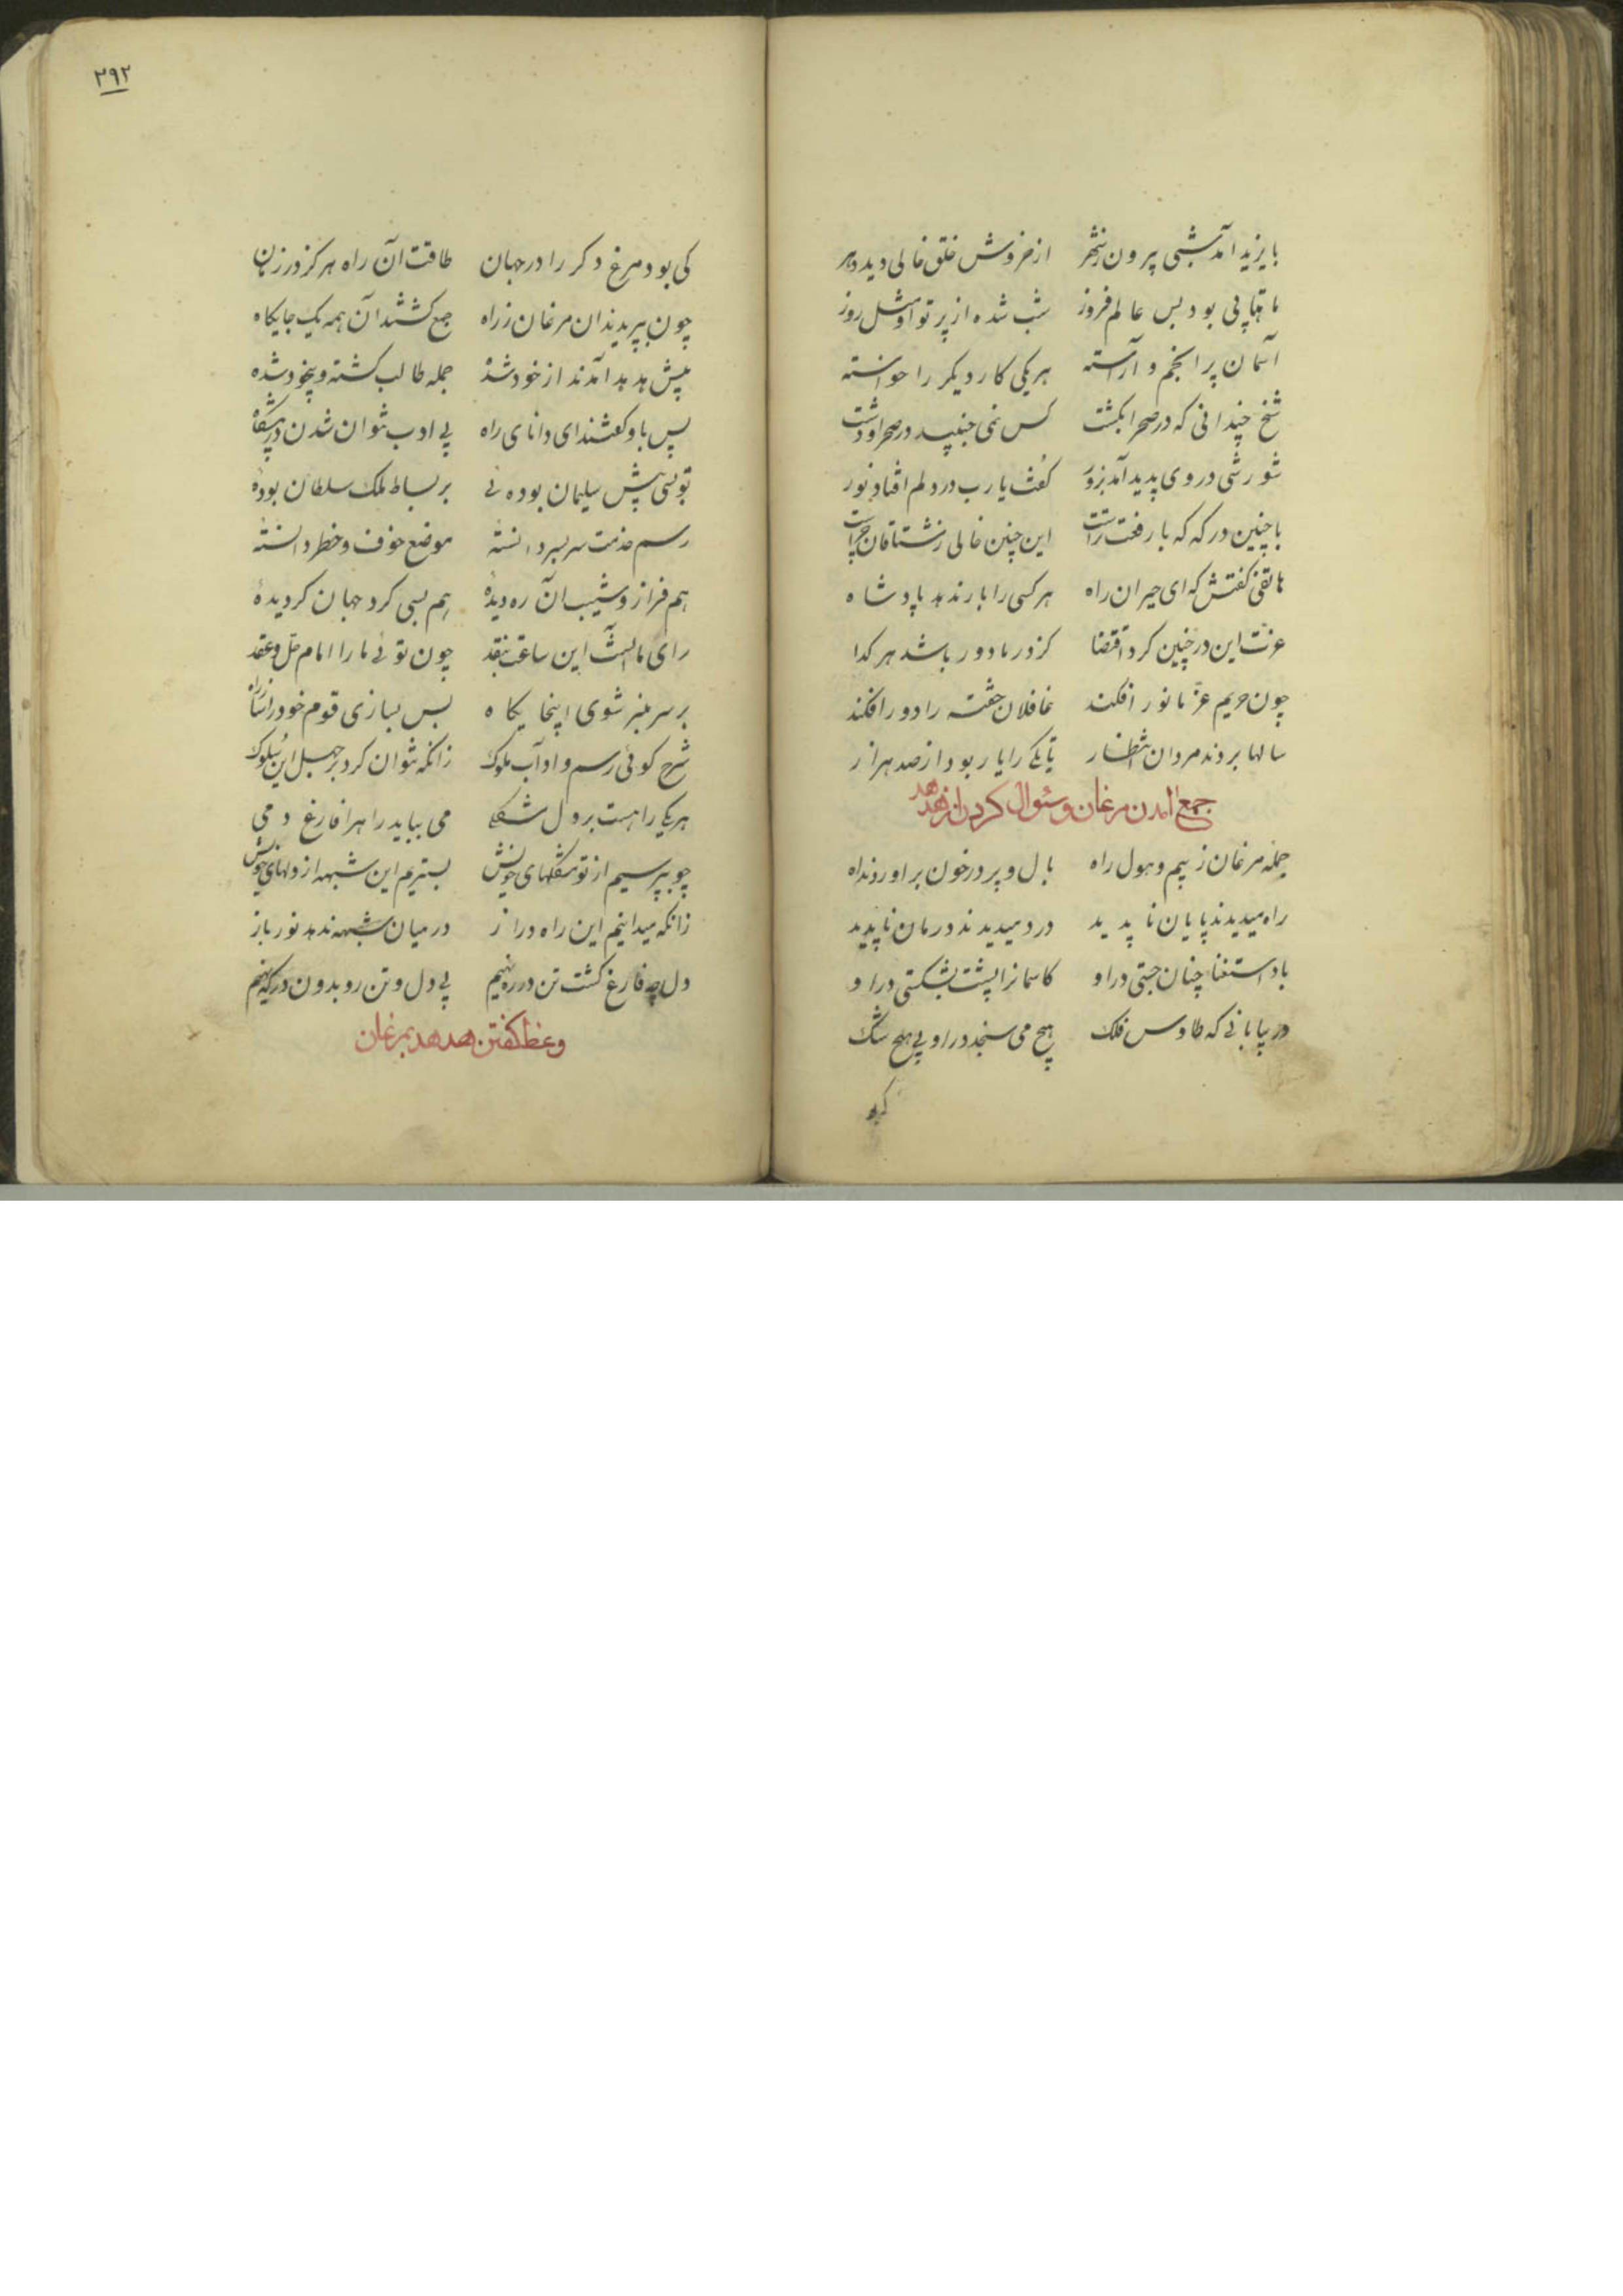 بایزید آمد شبی بیرون ز شهر از خروش خلق خالی دید دهر
ماهتابی بود بس عالم فروز شب شده از پرتو او مثل روز
آسمان پر انجم و آراسته هر یکی کار دیگر را خواسته
شیخ چندانی که در صحرا بکشت کس نمی جنبید در صحرا و دشت
شورشی در وی پدید آمد بزور گفت یا رب در دلم افتاد نور
با چنین درکه که با رفعت تراست این چنین خالی ز مشتاقان چراست
هاتفی گفتش که ای حیران راه هر کسی را بار ندهد پادشاه
عزت این در چنین کرد اقتضا کز در ما دور باشد هر کدا
چون حریم عز ما نور افکند غافلان خفته را دور افکند
سالها بردند مردان انتظار تا یکی را بار بود از صد هزار
جمع آمدن مرغان و سئوال کردن از هدهد
جمله مرغان ز بیم و هول راه بال و پر در خون براوردند اه
راه میدیدند پایان ناپدید درد میدیدند درمان ناپدید
باد استغنا چنان جستی درو کاسمانرا پشت بشکستی درو
در بیابانی که طاوس فلک هیچ می سنجد در او بی هیچ شک
کی بود
۳۹۲
کی بود مرغ دکر را در جهان طاقت آن راه هرکز در زمان
چون بپریدند ان مرغان ز راه جمع کشتند آن همه یک جایکاه
پیش هدهد آمدند از خود شده جمله طالب کشته و بیخود شده
پس باو کفتند ای دانای راه بی ادب نتوان شدن در پیشکاه
تو بسی پیش سلیمان بوده ئی بر بساط ملک سلطان بودهٔ
رسم خدمت سر بسر دانسته موضع خوف و خطر دانستهٔ
هم فراز و شیب ان ره دیدهٔ هم بسی کرد جهان کردیدهٔ
رای ما آنست این ساعت بنقد چون توئی ما را امام حل و عقد
بر سر منبر شوی اینجایکاه پس بسازی قوم خود را ساز راه
شرح کوئی رسم و اداب ملوک زانکه نتوان کرد بر جهل این سلوک
هر یکی را هست بر دل مشکلی می بباید راهرا فارغ دمی
چو بپرسیم از تو مشکلهای خویش بستریم این شبهه از دلهای خویش
زانکه میدانیم این راه دراز در میان شبهه ندهد نور باز
دل چه فارغ کشت تن در ره نهیم بی دل و تن رو بدون درکه نهیم
وعظ کفتن هدهد بمرغان